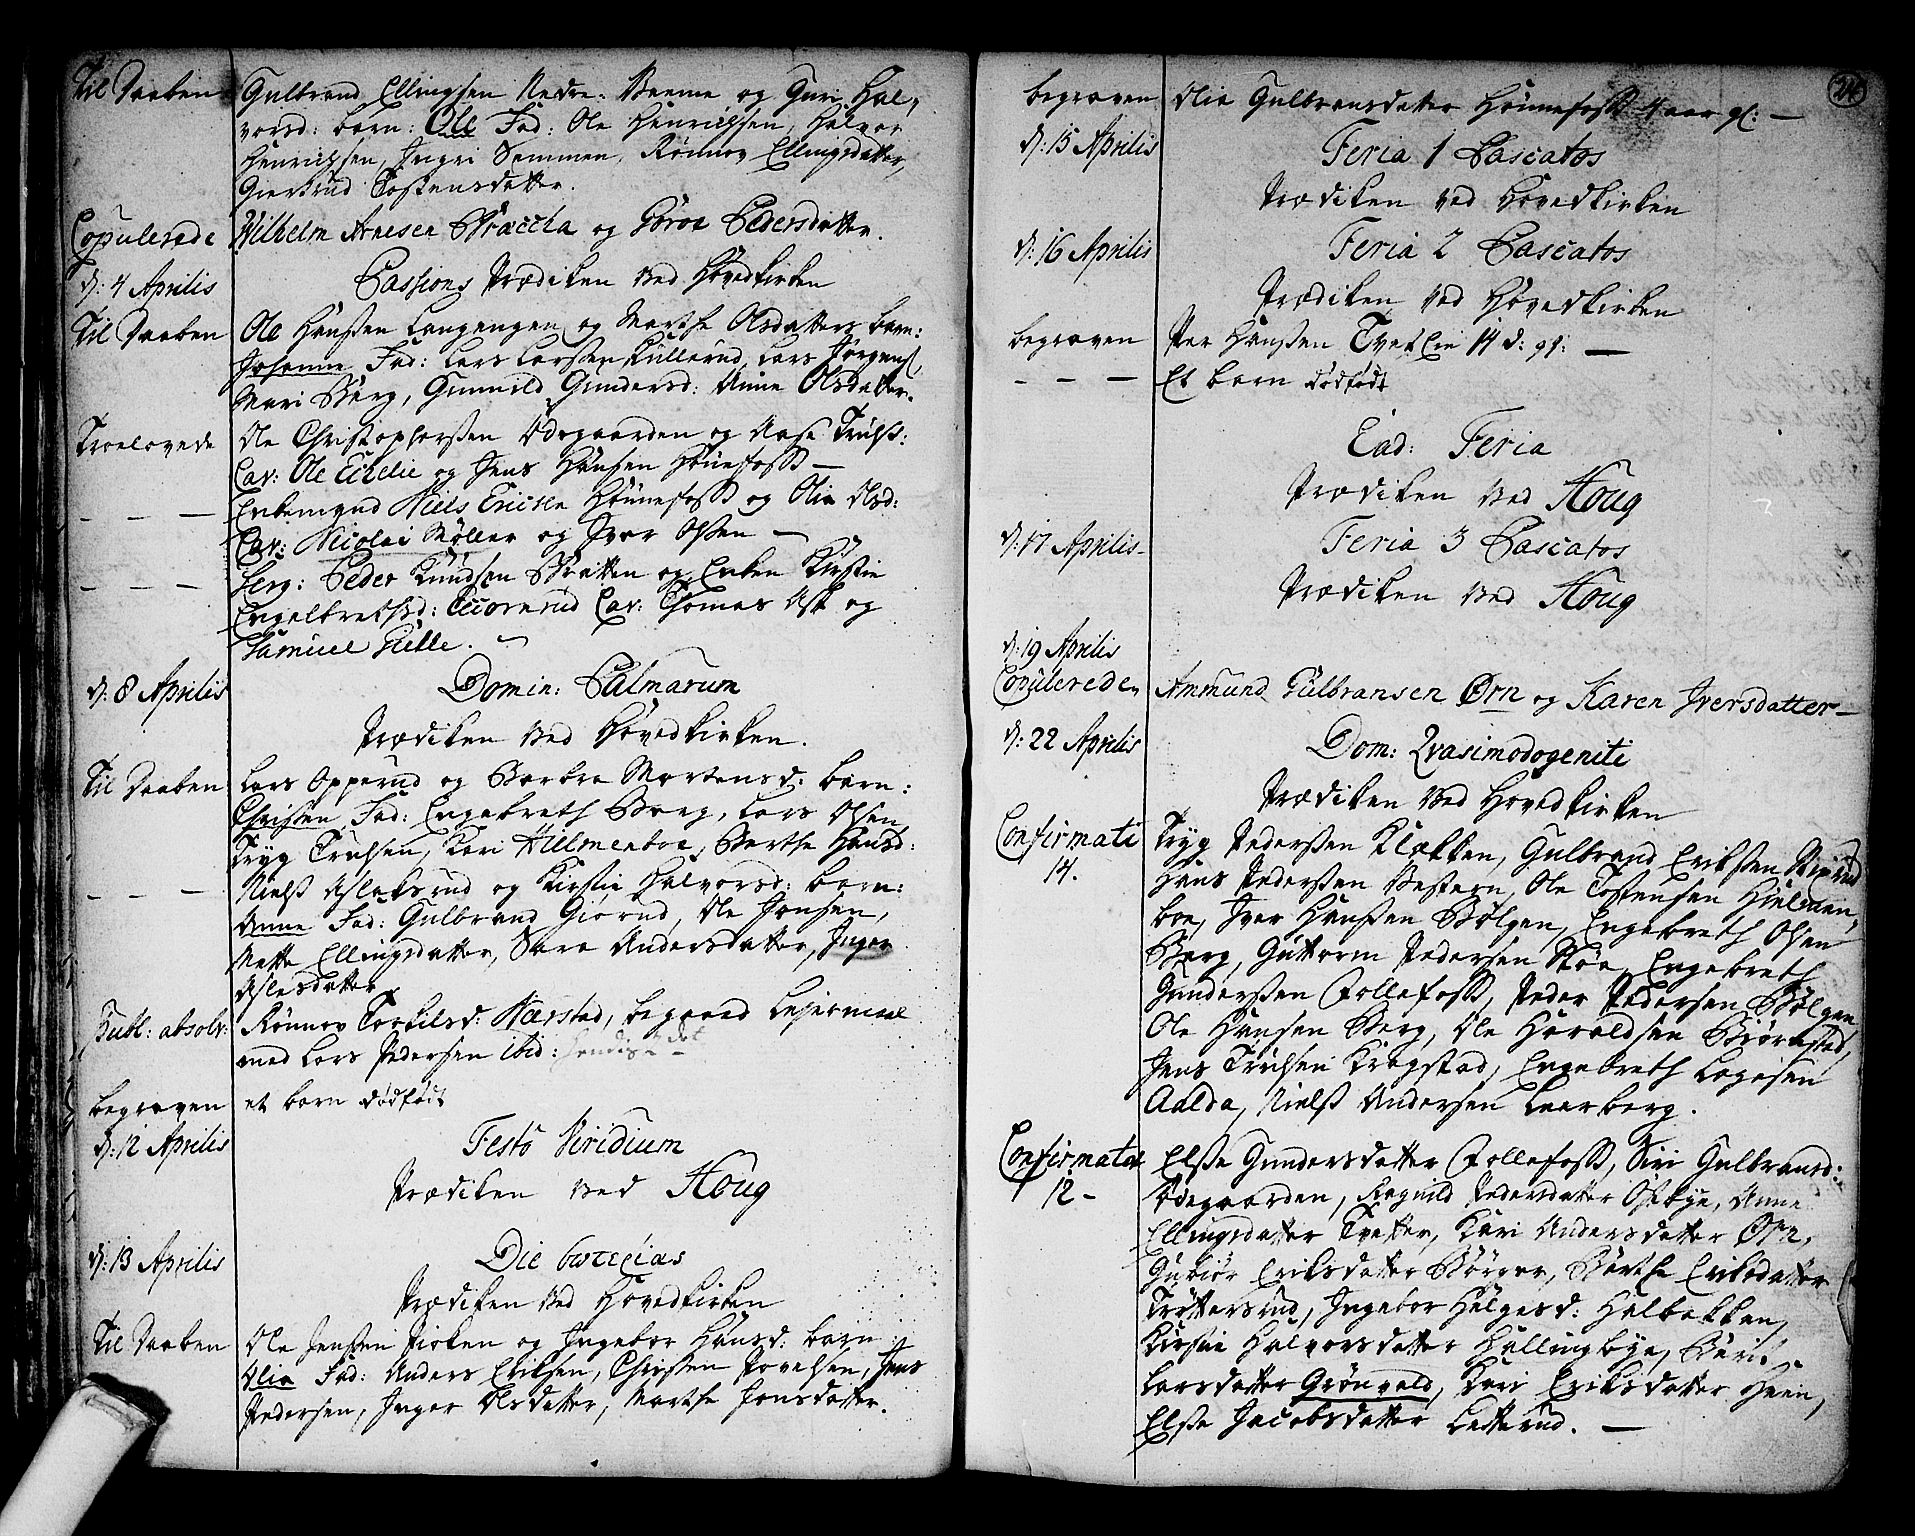 Til Daaben Gulbrand Ellingsen Nedre og Guri Hal-
vorsd: barn: Ole Fad: Ole Henrichsen, Halvor
Henrichsen, Ingri Semmen, Rønnov Ellingsdatter,
Giertrud Tostensdatter.
Copulerede Wilhelm Arnesen Braccha og Goroe Pedersdatter.
d: 4 Aprilis Passions Prædiken ved Hovedkirken
Til Daaben Ole Hanssen Langengen og Marthe Olsdatters barn:
Johanne Fad: Lars Larssen Kullerud, Lars Jørgens:,
Mari Berg, Gunnild Gundersd: Anne Olsdatter.
Troelovede Ole Christophersen Ødegaarden og Aase Truls:
Cav: Ole Eckelie og Jens Hansen Hønefoss —
— — — Enkemand Niels Ericsen Hønnefoss og Olia Olsd:
Cav: Nicolai Møller og Iver Olsen —
— — — Serg: Peder Knudsen Bratten og Enken Kirstie
Engelbretsd: Cav: Thomas Ask og
Samuel Gielle.
d: 8 Aprilis Domin: Palmarum
Prædiken ved Hovedkirken.
Til Daaben Lars Opperud og Barbra Mortensd: barn:
Christen Fad: Engebreth Berg, Lars Olsen
Tryg Trulsen, Kari Hielmenboe, Berthe Hansd:
— — — Niels Aslaksrud og Kirstie Halvorsd: barn:
Anne Fad: Gulbrand Giørud, Ole Jonsen,
Mette Ellingsdatter, Sara Andersdatter, Inger
Aslesdatter
Publ: absolv: Rønnov Torkilsd: Harstad, begaaed Lejermaal
med Lars Pedersen ibid:
begraven et barn dødfødt
d: 12 Aprilis Festo Viridium
Prædiken ved Houg
d: 13 Aprilis Die
Prædiken ved Hovedkirken
Til Daaben Ole Jenssen Firken og Ingebor Hansd: barn
Olia Fad: Anders Eriksen, Christen Povelsen, Jens
Pedersen, Inger Olsdatter, Marthe Jonsdatter.
24
begraven Olia Gulbransdatter Hønnefoss 4 aar gl: —
d: 15 Aprilis Feria 1 Pascatos
Prædiken ved Hovedkirken
d: 16 Aprilis Feria 2 Pascatos
Prædiken ved Hovedkirken
begraven Per Hanssen Tvet Eie 14 d: gl: —
— — — Et barn dødfødt
Ead: Feria
Prædiken ved Houg
d: 17 Aprilis Feria 3 Pascatos
Prædiken ved Houg
d: 19 Aprilis
Copulereden Ammund Gulbransen Ørn og Karen Iversdatter —
d: 22 Aprilis Dom: Qvasimodogeniti
Prædiken ved Hovedkirken
Confirmati Tryg Pederssen Klækken, Gulbrand Erikssen
14. Hans Pederssen Vestern, Ole Tostensen Hielmen-
boe, Iver Hanssen Bølgen, Engebreth Olsen
Berg, Guttorm Pedersen Støe, Engebreth
Gunderssen Follefoss, Peder Pedersen Bølgen
Ole Hansen Berg, Ole Haraldsen Biørnstad,
Jens Trulsen Kragstad, Engebreth Lagesen
Aalda, Niels Andersen Leerberg.
Confirmatæ Else Gundersdatter Follefoss, Siri Gulbransd:
12 - Ødegaarden, Ragnild Pedersdatter Oskbye, Anne
Ellingsdatter Tvetter, Kari Andersdatter Ørn,
Gubiør Eriksdatter Børger, Berthe Eriksdatter
Trøttersrud, Ingebor Helgesd: Halbakken,
Kirstie Halvorsdatter Hallingbye, Berit
Larsdatter Grønvold, Kari Eriksdatter Heen,
Else Jacobsdatter Letterud. —